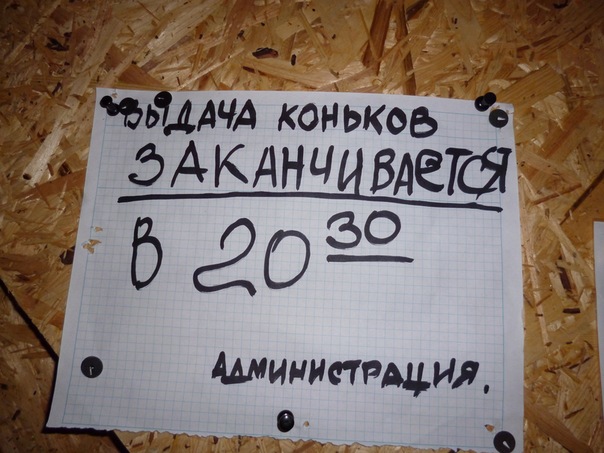 ВЫДАЧА КОНЬКОВ
ЗАКАНЧИВАЕТСЯ
В 20 30
АДМИНИСТРАЦИЯ.